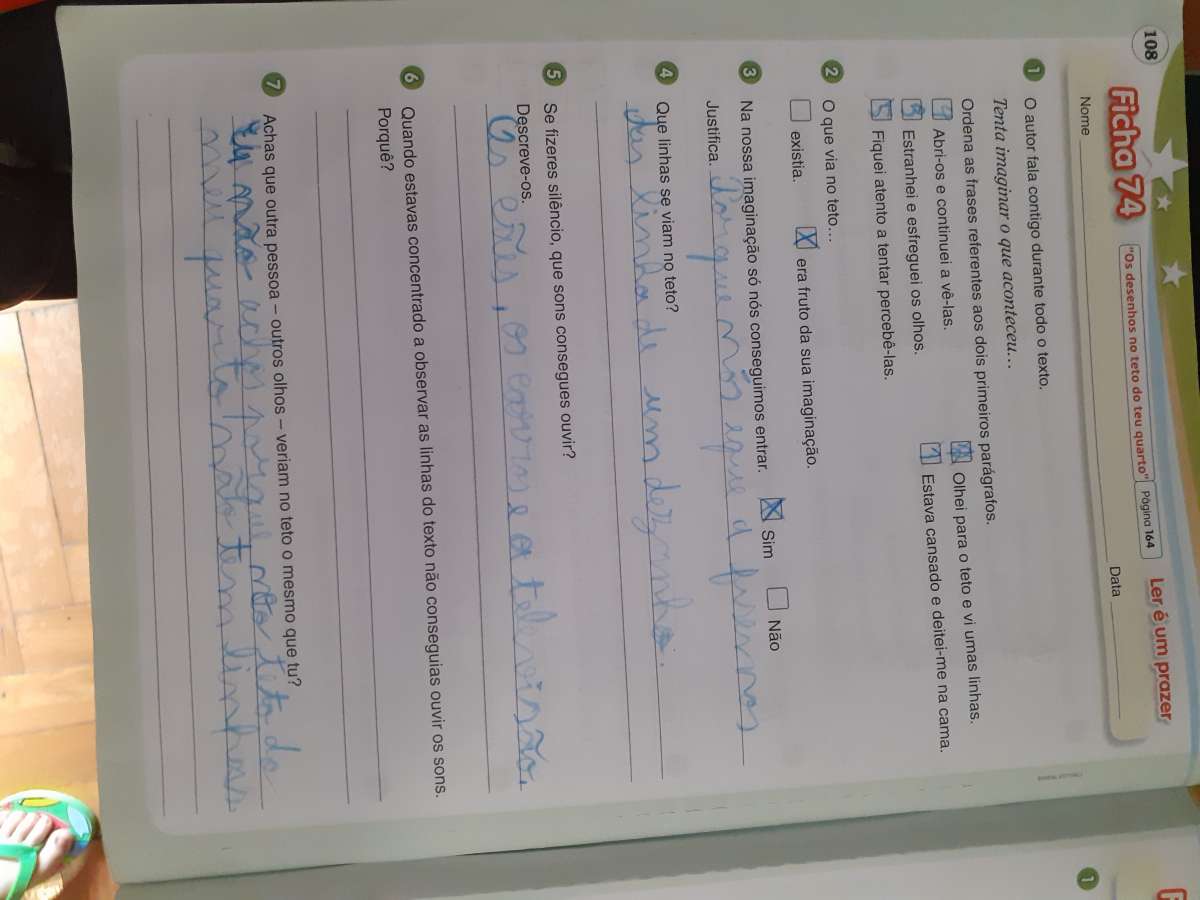 108
Ficha 74
"Os desenhos no teto do teu quarto"
Página 164
Ler é um prazer
Nome
Data
1 O autor fala contigo durante todo o texto.
Tenta imaginar o que aconteceu...
Ordena as frases referentes aos dois primeiros parágrafos.
4 Abri-os e continuei a vê-las.
Olhei para o teto e vi umas linhas.
3 Estranhei e esfreguei os olhos.
1 Estava cansado e deitei-me na cama.
5 Fiquei atento a tentar percebê-las.
2 O que via no teto...
existia.
X era fruto da sua imaginação.
3 Na nossa imaginação só nós conseguimos entrar.
X Sim
Não
Justifica. Porque nós é que a
4 Que linhas se viam no teto?
das linha de um dezanho.
5 Se fizeres silêncio, que sons consegues ouvir?
Descreve-os.
Os cães, os carros e a televizão.
6 Quando estavas concentrado a observar as linhas do texto não conseguias ouvir os sons.
Porquê?
7 Achas que outra pessoa – outros olhos – veriam no teto o mesmo que tu?
Eu não acho porque no teto do
meu quarto não tem linhas
1